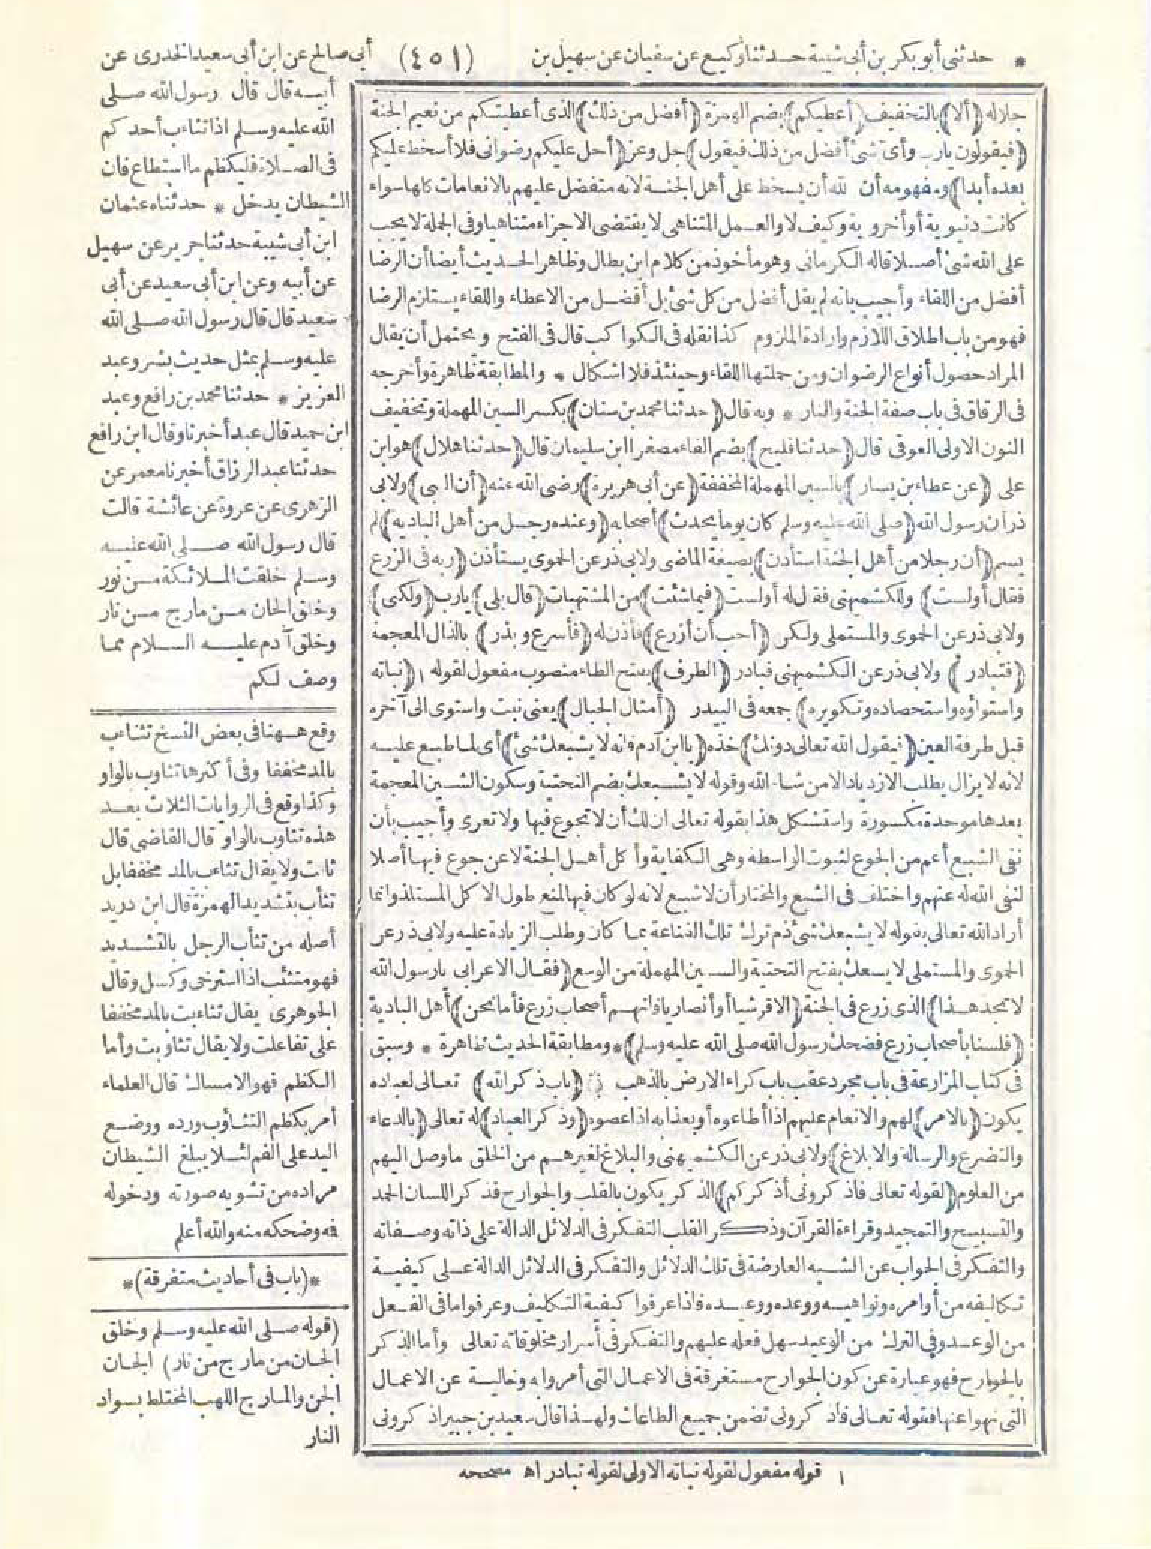 * حدثني أبو بكر بن أبي شيبة حدثنا وكيع عن سفيان عن سهيل بن
(٤٥١)
أبي صالح عن ابن أبي سعيد الخدري عن
أبيه قال قال رسول الله صلى
الله عليه وسلم اذا تثاءب أحدكم
في الصلاة فليكظم ما استطاع فان
الشيطان يدخل * حدثناه عثمان
ابن أبي شيبة حدثنا جرير عن سهيل
عن أبيه وعن ابن أبي سعيد عن أبي
سعيد قال قال رسول الله صلى الله
عليه وسلم بمثل حديث بشر وعبد
العزيز * حدثنا محمد بن رافع وعبد
ابن حميد قال عبد أخبرنا وقال ابن رافع
حدثنا عبد الرزاق أخبرنا معمر عن
الزهري عن عروة عن عائشة قالت
قال رسول الله صلى الله عليه
وسلم خلقت الملائكة من نور
وخلق الجان من مارج من نار
وخلق آدم عليه السلام مما
وصف لكم
وقع ههنا في بعض النسخ تثاءب
بالمد مخففا وفي أكثرها تثاوب بالواو
وكذا وقع في الروايات الثلاث بعد
هذه تثاوب بالواو قال القاضي قال
ثابت ولا يقال تثاءب بالمد مخففا بل
تثأب بتشديد الهمزة قال ابن دريد
أصله من تثأب الرجل بالتشديد
فهو متثئب اذا استرخى وكسل وقال
الجوهري يقال تثاءبت بالمد مخففا
على تفاعلت ولا يقال تثاوبت وأما
الكظم فهو الامساك قال العلماء
أمر بكظم التثاؤب ورده ووضع
اليد على الفم لئلا يبلغ الشيطان
مراده من تشويه صورته ودخوله
فه وضحكه منه والله أعلم
*(باب في أحاديث متفرقة)*
(قوله صلى الله عليه وسلم وخلق
الجان من مارج من نار) الجان
الجن والمارج اللهب المختلط بسواد
النار
جلاله (ألا) بالتخفيف (أعطيكم) بضم الهمزة (أفضل من ذلك) الذي أعطيتكم من نعيم الجنة
(فيقولون يارب وأي شئ أفضل من ذلك فيقول) جل وعز (أحل عليكم رضواني فلا أسخط عليكم
بعده أبدا) ومفهومه أن لله أن يسخط على أهل الجنة لانه متفضل عليهم بالانعامات كلها سواء
كانت دنيوية أو أخروية وكيف لا والعمل المتناهي لا يقتضي الاجزاء متناهيا وفي الجملة لا يجب
على الله شئ أصلا قاله الكرماني وهو مأخوذ من كلام ابن بطال وظاهر الحديث أيضا أن الرضا
أفضل من اللقاء وأجيب بانه لم يقل أفضل من كل شئ بل أفضل من الاعطاء واللقاء يستلزم الرضا
فهو من باب اطلاق اللازم وارادة الملزوم كذا نقله في الكواكب قال في الفتح ويحتمل أن يقال
المراد حصول أنواع الرضوان ومن جملتها اللقاء وحينئذ فلا اشكال * والمطابقة ظاهرة وأخرجه
في الرقاق في باب صفة الجنة والنار * وبه قال (حدثنا محمد بن سنان) بكسر السين المهملة وتخفيف
النون الاولى العوقي قال (حدثنا فليح) بضم الفاء مصغرا ابن سليمان قال (حدثنا هلال) هو ابن
على (عن عطاء بن يسار) بالسين المهملة المخففة (عن أبي هريرة) رضي الله عنه (أن النبي) ولابي
ذر أن رسول الله (صلى الله عليه وسلم كان يوما يحدث) أصحابه (وعنده رجل من أهل البادية) لم
يسم (أن رجلا من أهل الجنة استأذن) بصيغة الماضي ولابي ذر عن الحموي يستأذن (ربه في الزرع
فقال أولست) وللكشميهني فقال له أولست (فيما شئت) من المشتهيات (قال بلى) يارب (ولكني)
ولابي ذر عن الحموي والمستملي ولكن (أحب أن أزرع) فأذن له (فأسرع وبذر) بالذال المعجمة
(فتبادر) ولابي ذر عن الكشميهني فبادر (الطرف) بفتح الطاء منصوب مفعول لقوله ١ (نباته
واستواؤه واستحصاده وتكويره) جمعه في البيدر (أمثال الجبال) يعني نبت واستوى الى آخره
قبل طرفة العين (فيقول الله تعالى دونك) خذه (يا ابن آدم فانه لا يشبعك شئ) أي لما طبع عليه
لانه لا يزال يطلب الازدياد الا من شاء الله وقوله لا يشبعك بضم التحتية وسكون الشين المعجمة
بعدها موحدة مكسورة واستشكل هذا بقوله تعالى ان لك أن لا تجوع فيها ولا تعرى وأجيب بأن
نفي الشبع أعم من الجوع لثبوت الواسطة وهي الكفاية وأكل أهل الجنة لا عن جوع فيها أصلا
لنفي الله له عنهم واختلف في الشبع والمختار أن لا شبع لانه لو كان فيها لمنع طول الاكل المستلذ وانما
أراد الله تعالى بقوله لا يشبعك شئ ذم ترك تلك القناعة بما كان وطلب الزيادة عليه ولابي ذر عن
الحموي والمستملي لا يسعك بفتح التحتية والسين المهملة من الوسع (فقال الاعرابي يا رسول الله
لا تجد هذا) الذي زرع في الجنة (الا قرشيا أو أنصاريا فانهم أصحاب زرع فأما نحن) أهل البادية
(فلسنا بأصحاب زرع فضحك رسول الله صلى الله عليه وسلم) * ومطابقة الحديث ظاهرة * وسبق
في كتاب المزارعة في باب مجرد عقب باب كراء الارض بالذهب (باب ذكر الله) تعالى لعباده
يكون (بالامر) لهم والانعام عليهم اذا أطاعوه أو بعذابه اذا عصوه (وذكر العباد) له تعالى (بالدعاء
والتضرع والرسالة والابلاغ) ولابي ذر عن الكشميهني والبلاغ لغيرهم من الخلق ما وصل اليهم
من العلوم (لقوله تعالى فاذكروني أذكركم) الذكر يكون بالقلب والجوارح فذكر اللسان الحمد
والتسبيح والتمجيد وقراءة القرآن وذكر القلب التفكر في الدلائل الدالة على ذاته وصفاته
والتفكر في الجواب عن الشبه العارضة في تلك الدلائل والتفكر في الدلائل الدالة على كيفية
تكاليفه من أوامره ونواهيه ووعده ووعيده فاذا عرفوا كيفية التكليف وعرفوا ما في الفعل
من الوعد وفي الترك من الوعيد سهل فعله عليهم والتفكر في أسرار مخلوقاته تعالى وأما الذكر
بالجوارح فهو عبارة عن كون الجوارح مستغرقة في الاعمال التي أمروا به وخالية عن الاعمال
التي نهوا عنها فقوله تعالى فاذكروني تضمن جميع الطاعات ولهذا قال سعيد بن جبير اذكروني
١ قوله مفعول لقوله نباته الاولى لقوله تبادر اه مصححه